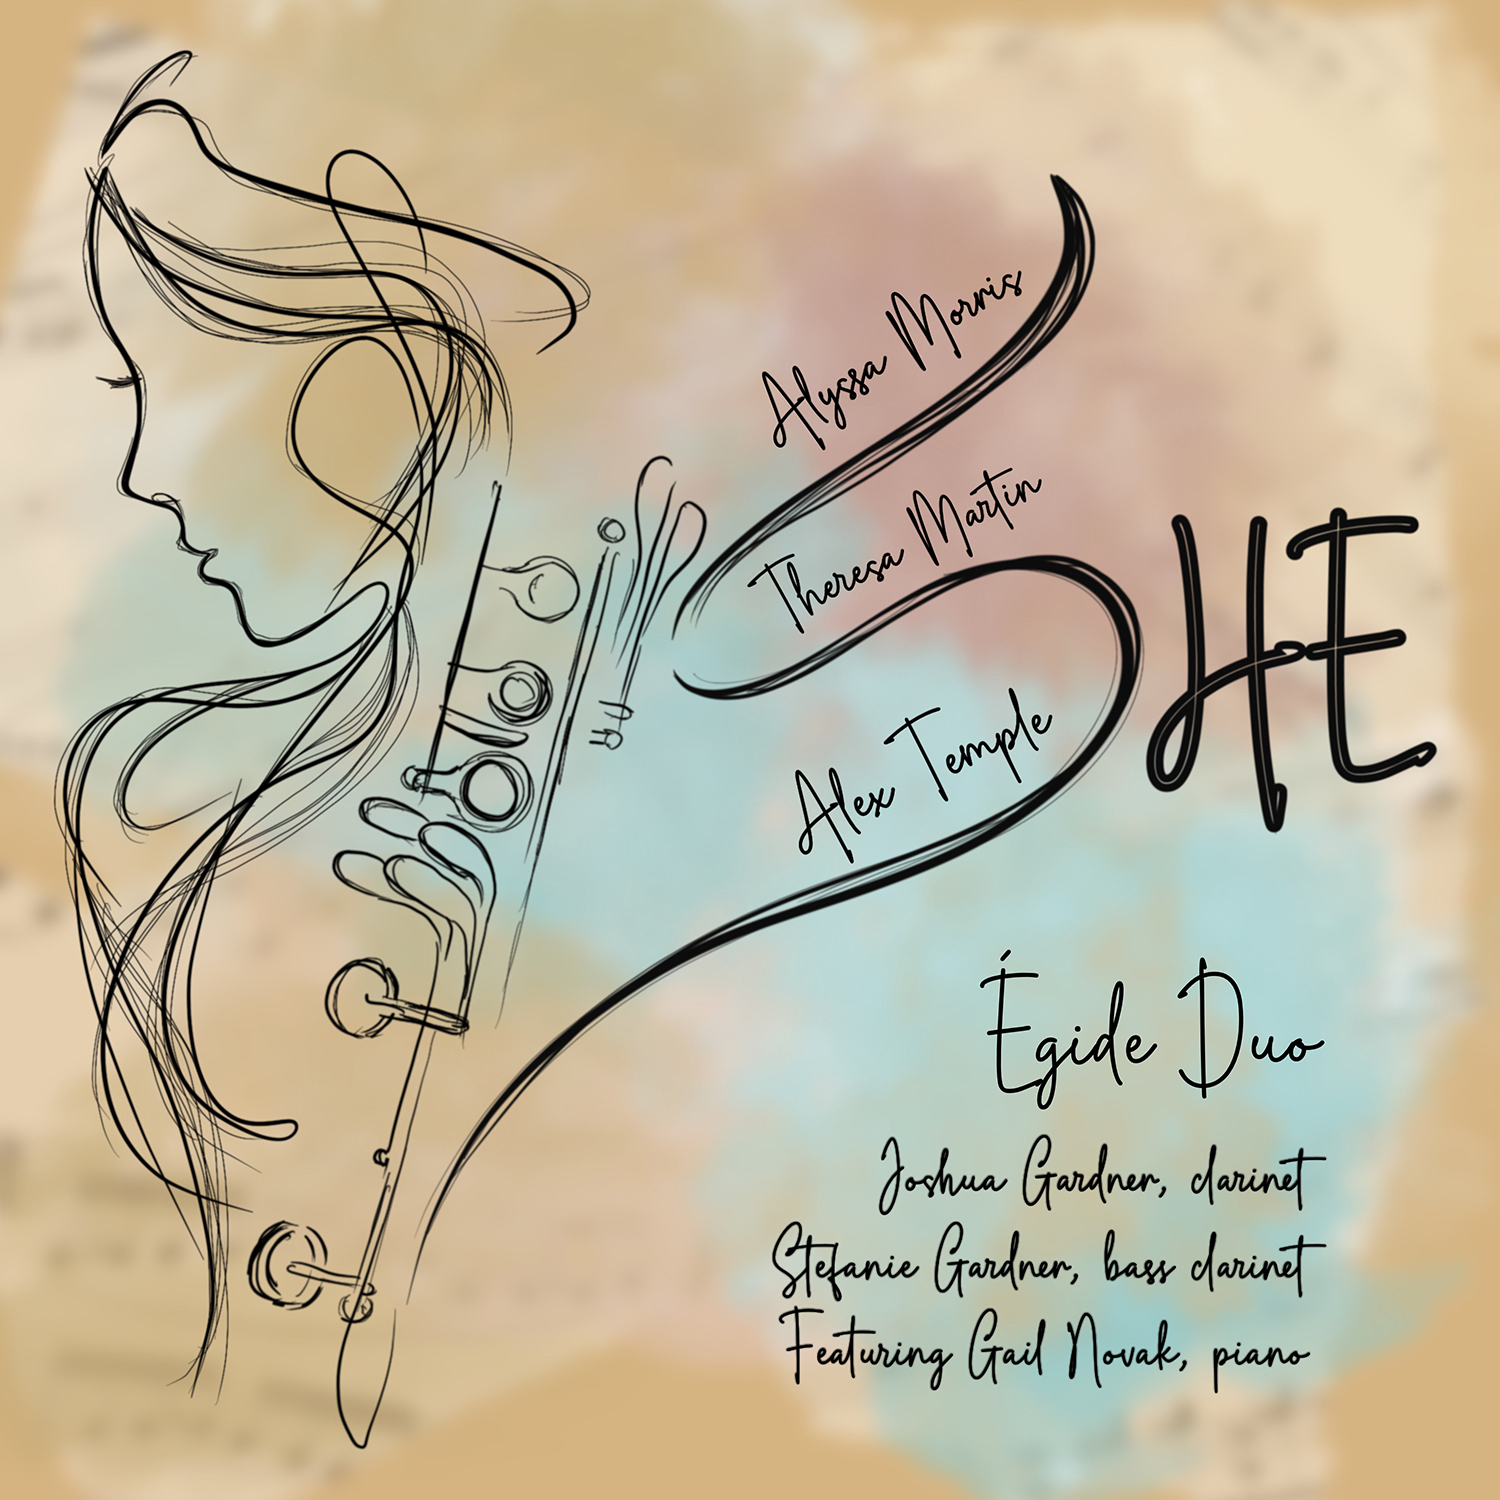 Alyssa Morris
Theresa Martin
Alex Temple
SHE
Égide Duo
Joshua Gardner, clarinet
Stefanie Gardner, bass clarinet
Featuring Gail Novak, piano